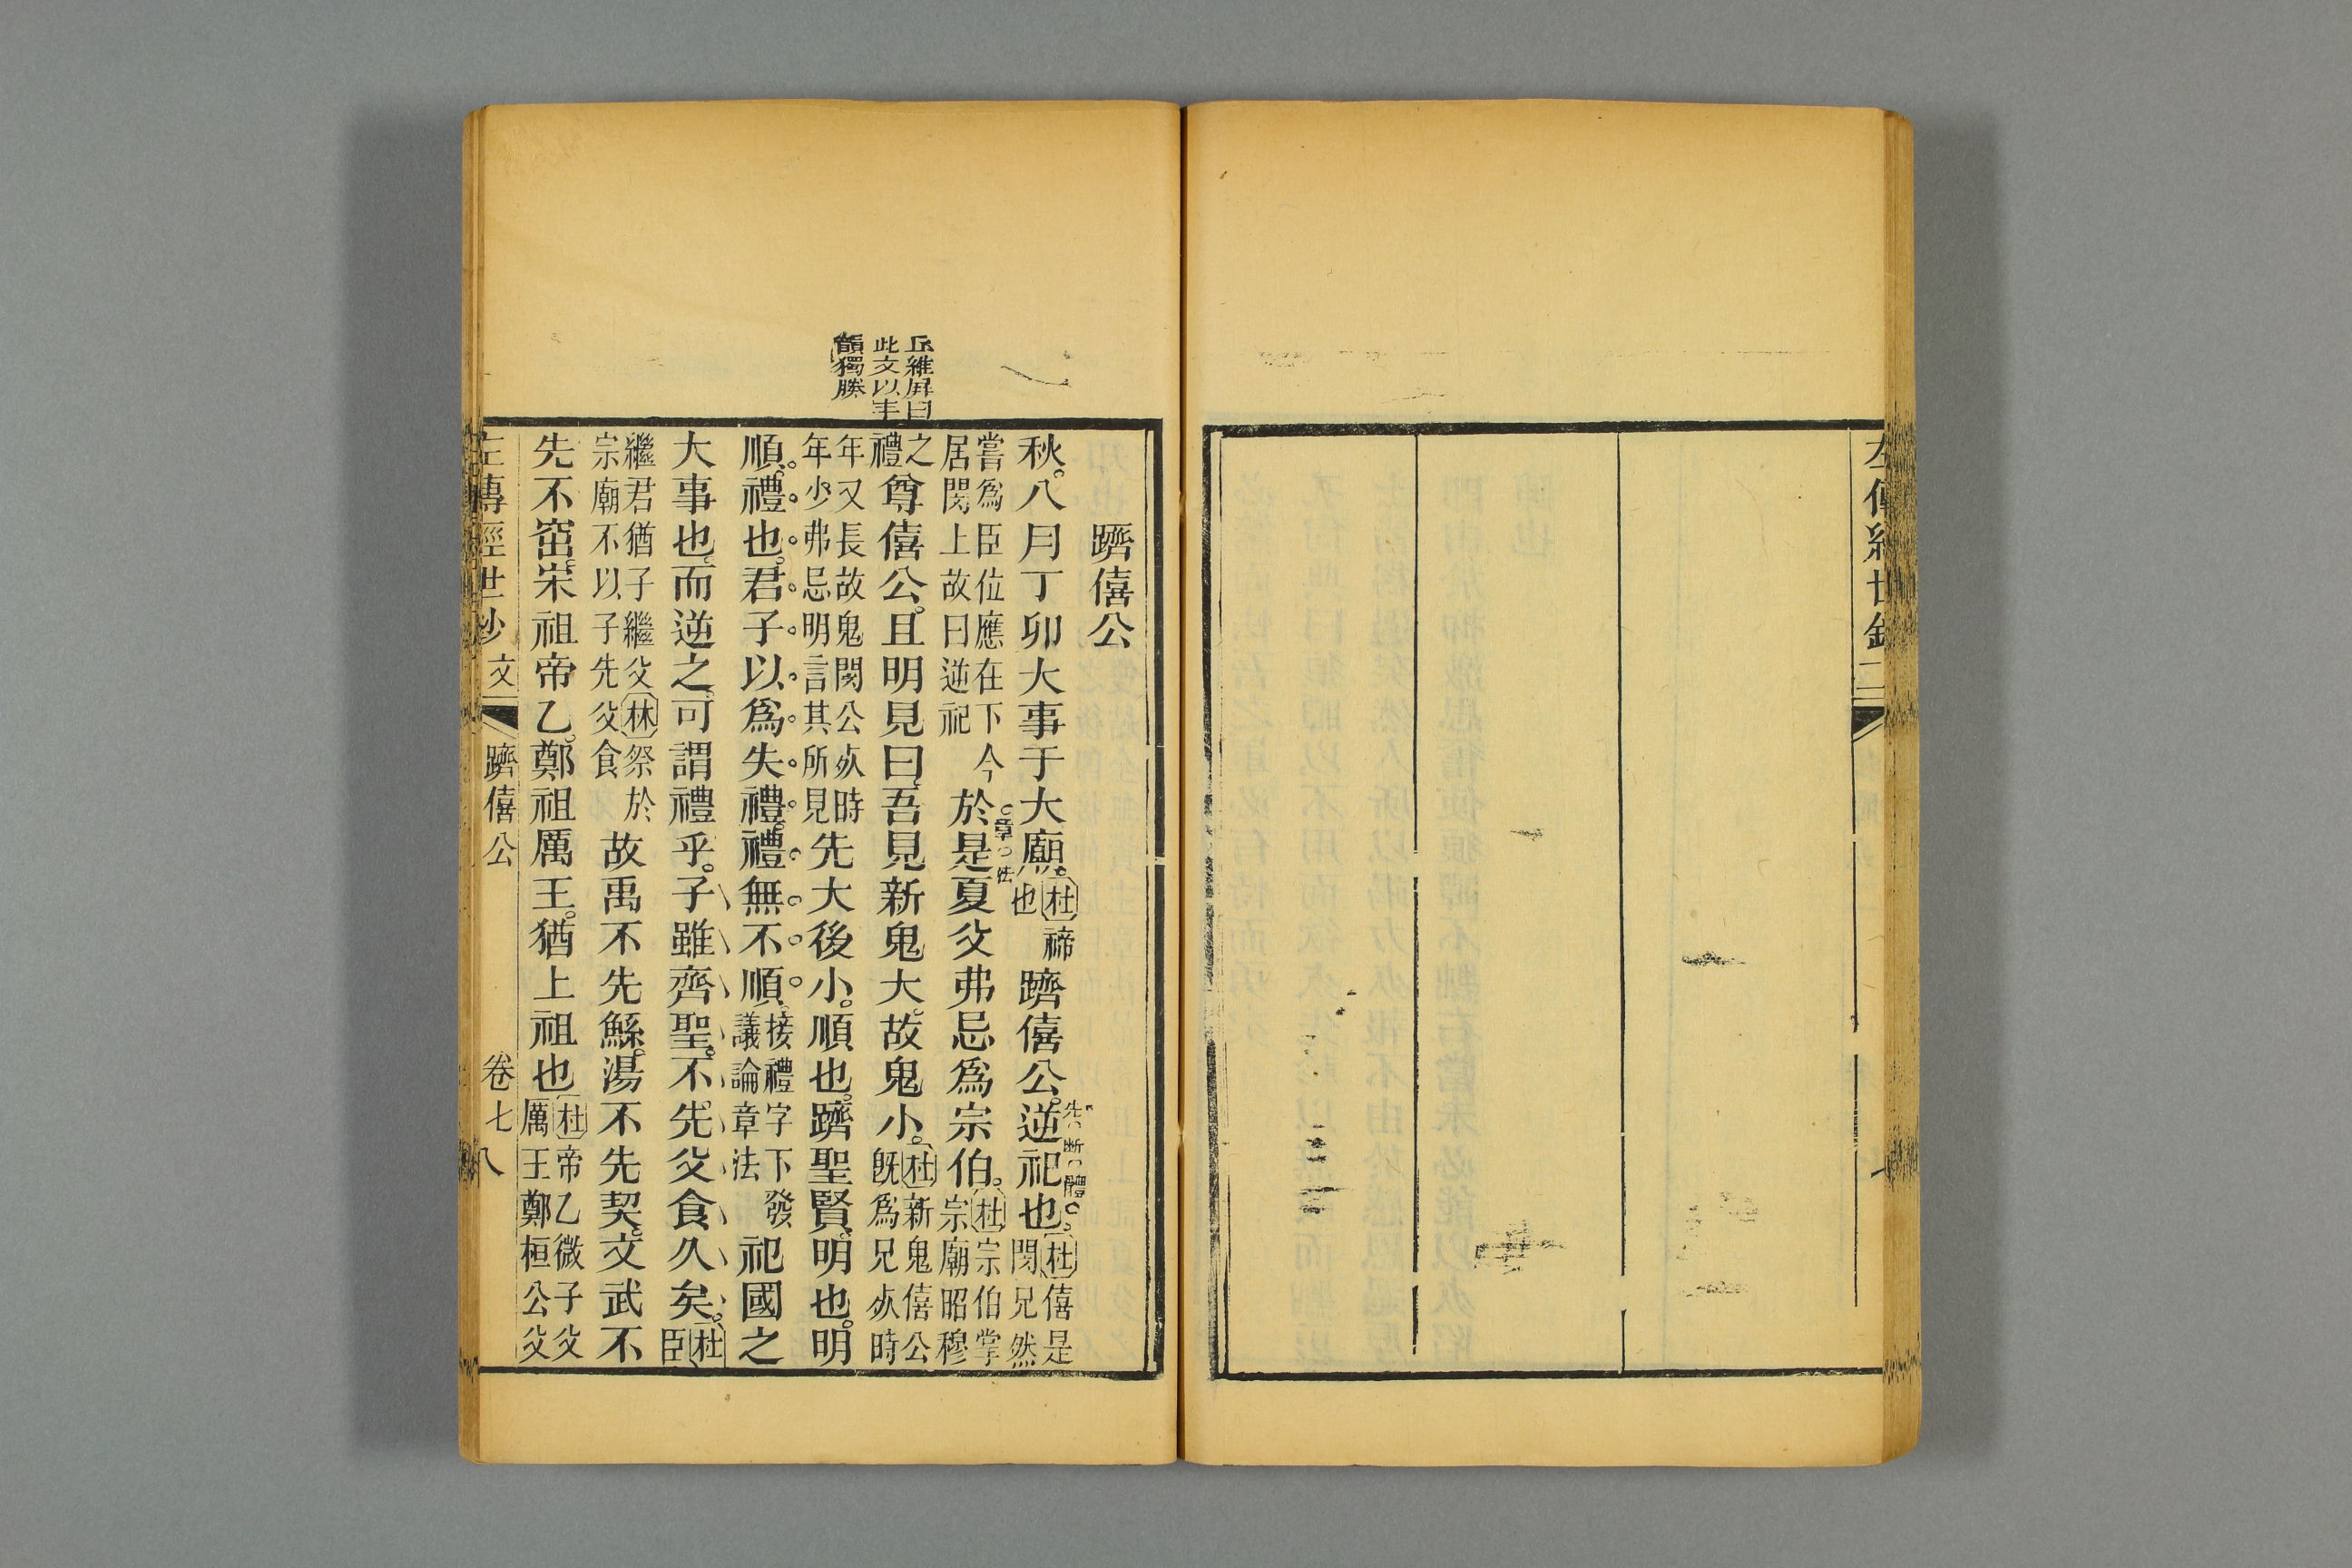 左傳經世鈔
丘維屏曰
此文以丰
韻獨勝
躋僖公
秋八月丁卯大事于大廟。杜禘也躋僖公。逆祀也。杜僖是閔兄然
先斷禮
嘗爲臣位應在下今居閔上故曰逆祀於是夏父弗忌爲宗伯。杜宗伯掌宗廟昭穆
章法
之禮尊僖公。且明見曰。吾見新鬼大。故鬼小。杜新鬼僖公既爲兄死時
年又長故鬼閔公死時年少弗忌明言其所見先大後小。順也。躋聖賢。明也。明
順。禮也。君子以爲失禮。禮無不順。接禮字下發議論章法祀國之
大事也。而逆之。可謂禮乎。子雖齊聖。不先父食久矣。杜臣
繼君猶子繼父林祭於宗廟不以子先父食故禹不先鯀。湯不先契。文武不
先不窋。宋祖帝乙。鄭祖厲王。猶上祖也杜帝乙微子父厲王鄭桓公父
左傳經世鈔 文 躋僖公 卷七 八